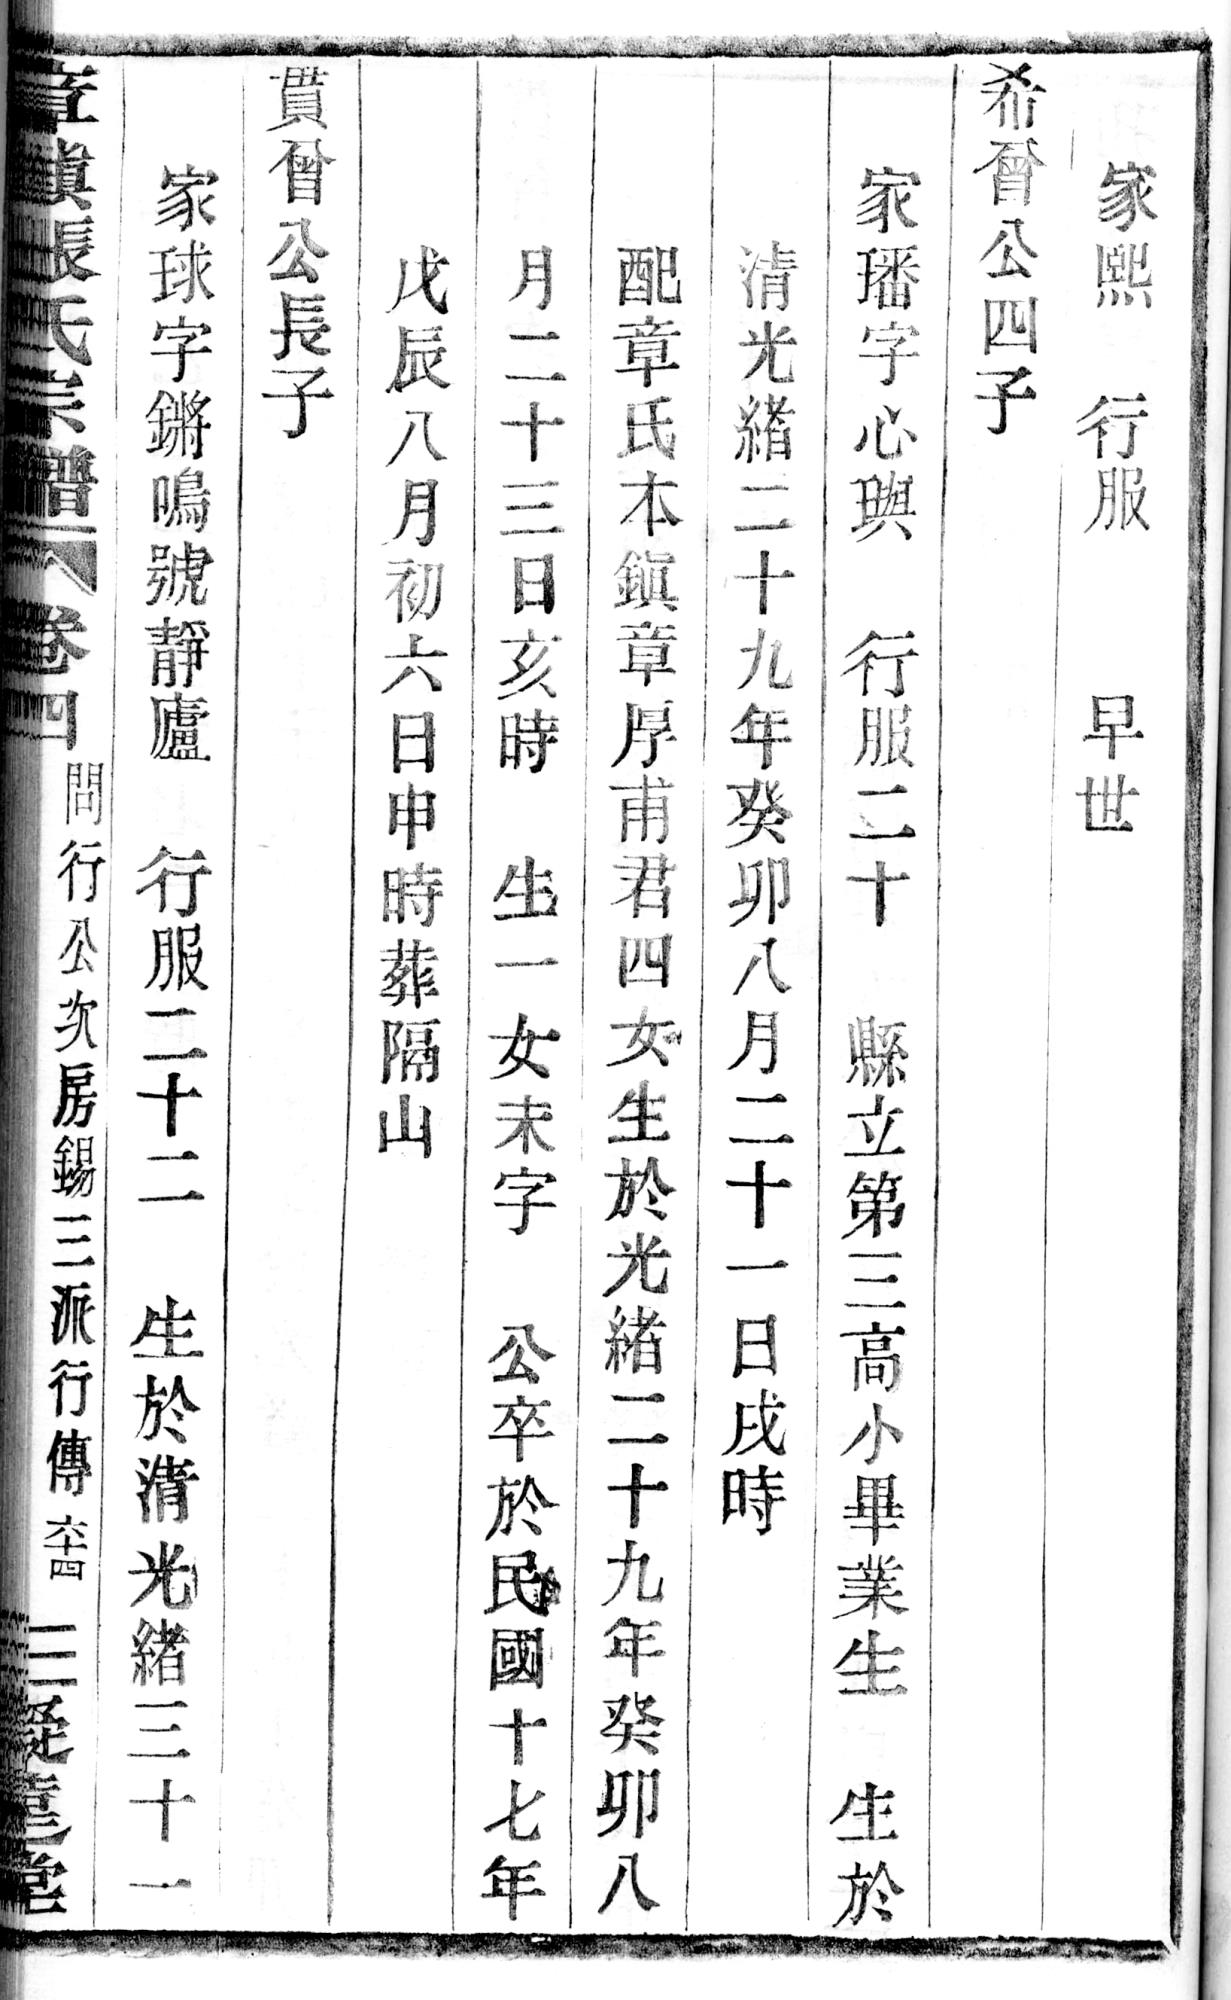 家熙　行服　　早世
希晉公四子
家璠字心璵　行服二十　縣立第三高小畢業生　生於
清光緒二十九年癸卯八月二十一日戌時
配章氏本鎭章厚甫君四女生於光緒二十九年癸卯八
月二十三日亥時　生一女未字　公卒於民國十七年
戊辰八月初六日申時葬隔山
貫晉公長子
家球字鏘鳴號靜廬　行服二十二　生於清光緒三十一
章鎭張氏宗譜　卷四　問行公次房錫三派行傳　六十四　三疑堂